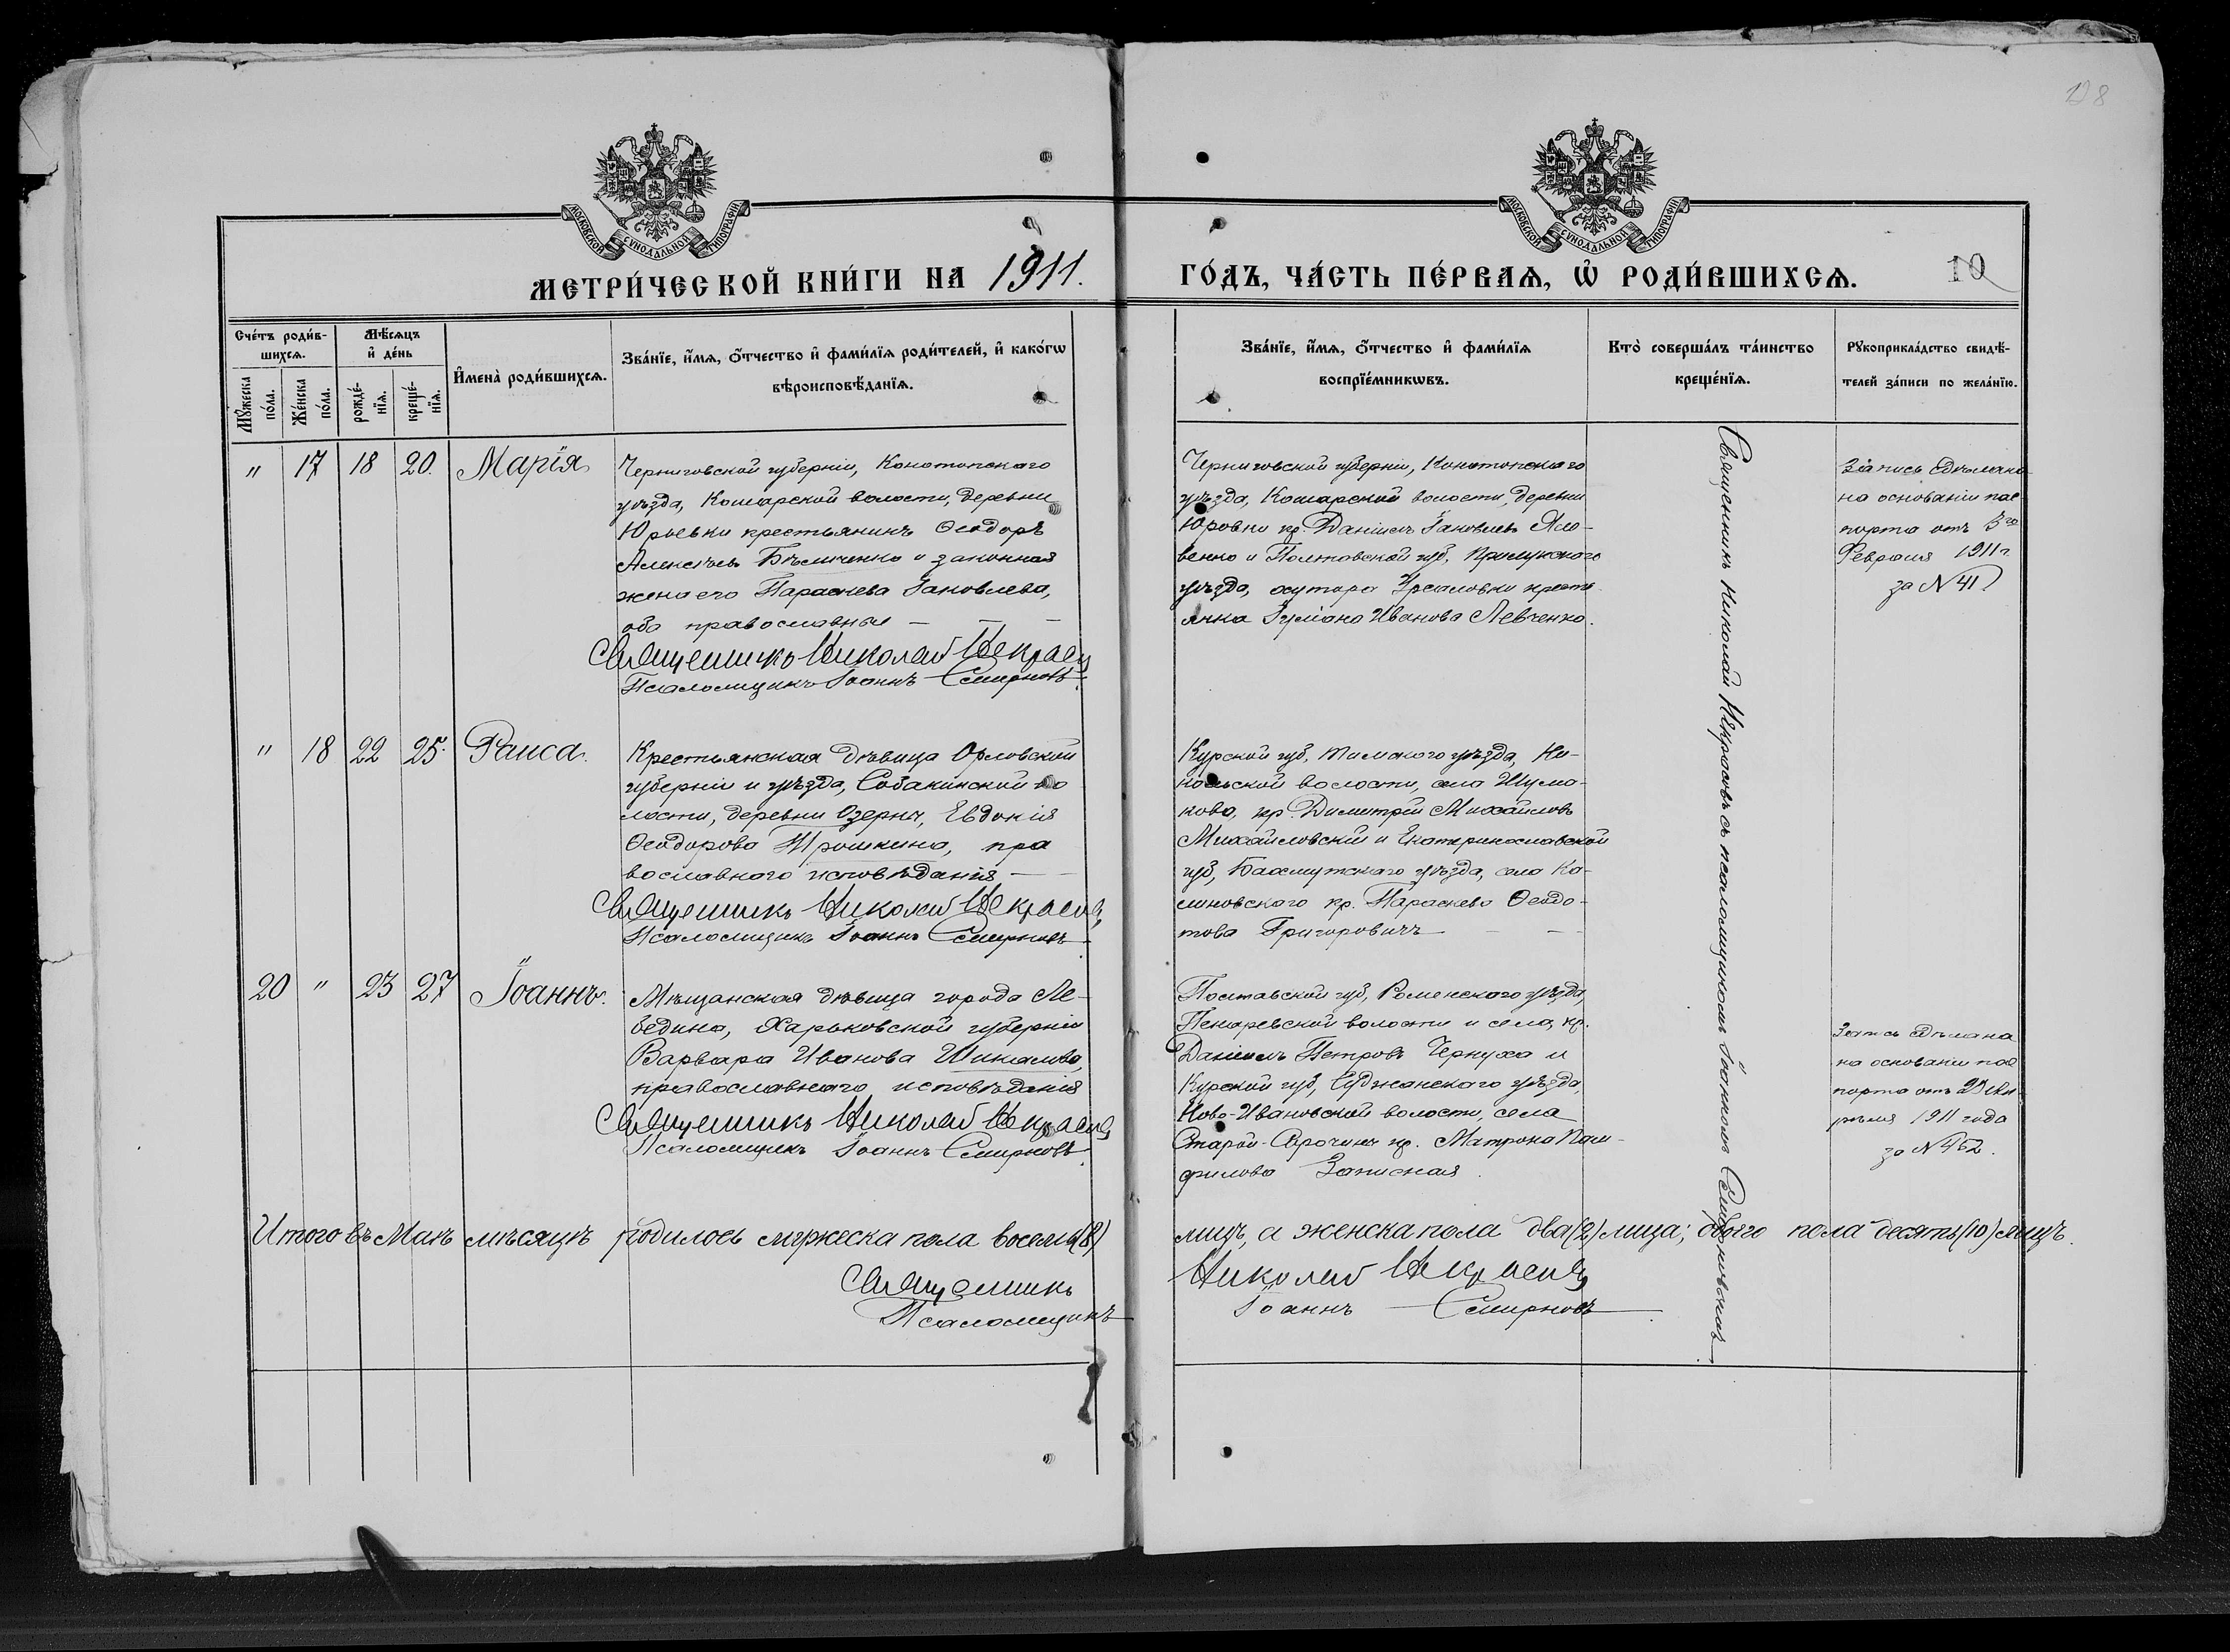 108
МОСКОВСКОЙ СУНОДАЛЬНОЙ ТИПОГРАФІИ
МОСКОВСКОЙ СУНОДАЛЬНОЙ ТИПОГРАФІИ
МЕТРИ́ЧЕСКОЙ КНИ́ГИ НА 1911.
ГО́ДЪ, ЧА́СТЬ ПЕ́РВАѦ, Ѡ РОДИ́ВШИХСѦ.
10
Сче́тъ роди́в-
шихсѧ.
Мꙋ́жеска
по́ла.
Же́нска
по́ла.
Мѣ́сѧцъ
и҆ де́нь
рожде́-
нїѧ.
креще́-
нїѧ.
И҆мена̀ роди́вшихсѧ.
Зва́нїе, и҆́мѧ, ѻ҆́тчество и҆ фами́лїѧ роди́телей, и҆ како́гѡ
вѣроисповѣ́данїѧ.
Зва́нїе, и҆́мѧ, ѻ҆́тчество и҆ фами́лїѧ
воспрїе́мникѡвъ.
Кто̀ соверша́лъ та́инство
креще́нїѧ.
Рꙋкоприкла́дство свидѣ́-
телей за́писи по жела́нїю.
" 17 18 20. Марія
Черниговской губерніи, Конотопскаго
уѣзда, Кошарской волости, деревни
Юрьевки крестьянинъ Ѳеодоръ
Алексѣевъ Бѣличенко и законная
жена его Параскева Іаковлева,
оба православные — — —
Священникъ Николай Некрасовъ
Псаломщикъ Іоаннъ Смирновъ.
Черниговской губерніи, Конотопскаго
уѣзда, Кошарской волости, деревни
Юровки кр. Даніилъ Іаковлевъ Яло-
венко и Полтавской губ, Прилукскаго
уѣзда, хутора крестья-
янка Іуліана Иванова Левченко.
Запись сдѣлана
на основаніи пас
порта отъ 3го
Февраля 1911 г
за № 41
Священникъ Николай Некрасовъ съ псаломщикомъ Іоанномъ Смирновымъ
" 18 22 25. Раиса.
Крестьянская дѣвица Орловской
губерніи и уѣзда, Собакинской во
лости, деревни Озерны, Евдокія
Ѳеодорова Трошкина, пра
вославнаго исповѣданія —
Священникъ Николай Некрасовъ
Псаломщикъ Іоаннъ Смирновъ.
Курской губ, Тимскаго уѣзда, Ни-
кольской волости, села Шума-
кова, кр. Димитрій Михаиловъ
Михайловскій и Екатеринославской
губ, Бахмутскаго уѣзда, села Ка-
линовскаго кр. Параскева Ѳеодо-
това Григоровичъ — —
20 " 23 27 Іоаннъ.
Мѣщанская дѣвица города Ле-
бедина, Харьковской губерніи
Варвара Иванова Шикалова,
православнаго исповѣданія
Священникъ Николай Некрасовъ
Псаломщикъ Іоаннъ Смирновъ.
Полтавской губ, Роменскаго уѣзда,
Пекаревской волости и села, кр.
Даніилъ Петровъ Чернуха и
Курской губ, Суджанскаго уѣзда,
Ново-Ивановской волости, села
Старой-Сорочинъ кр. Матрона Пам-
филова Записная.
Запись сдѣлана
на основаніи пас
порта отъ 25 Ап
рѣля 1911 года
за № 462.
Итого въ Маѣ мѣсяцѣ родилось мужеска пола восемь (8)
лицъ, а женска пола два (2) лица; обоего пола десять (10) лицъ.
Священникъ Николай Некрасовъ
Псаломщикъ Іоаннъ Смирновъ